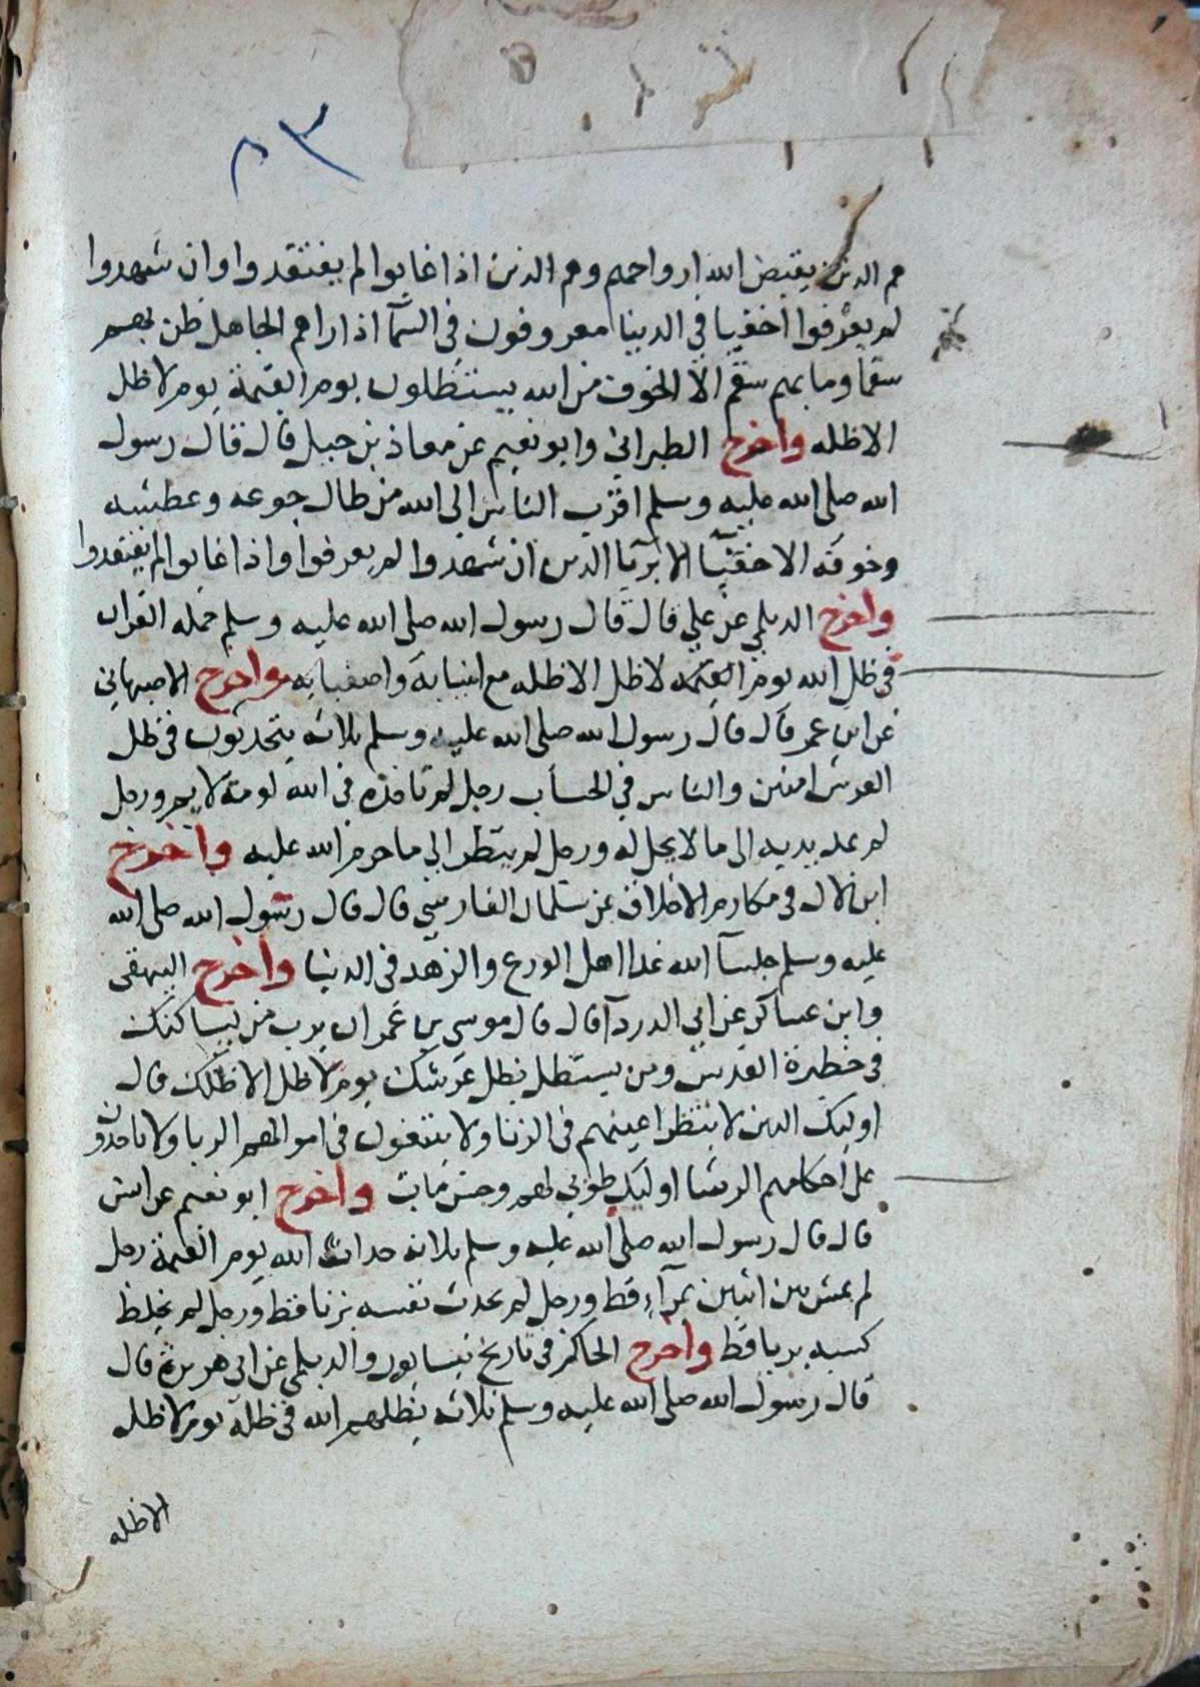 ٨٣
هم الدين يقبض الله ارواحهم وهم الذين اذا غابوا لم يفتقدوا وان شهدوا
لم يعرفوا اخفيا في الدنيا معروفون في السمآ اذا راهم الجاهل ظن بهم
سقما وما بهم سقم الا الخوف من الله يستظلون يوم القيمة يوم لا ظل
الا ظله واخرج الطبراني وابو نعيم عن معاذ بن جبل قال قال رسول
الله صلى الله عليه وسلم اقرب الناس الى الله من طال جوعه وعطشه
وخوفه الاخفيآ الابريآ الدين ان شهدوا لم يعرفوا واذا غابوا لم يفتقدوا
واخرج الديلمي عن علي قال قال رسول الله صلى الله عليه وسلم حمله القران
في ظل الله يوم القيمه لا ظل الا ظله مع انبيايه واصفيايه واخرج الاصبهاني
عن ابن عمر قال قال رسول الله صلى الله عليه وسلم ثلاثه يتحدثون في ظل
العرش امنين والناس في الحساب رجل لم تاخذه في الله لومة لايم ورجل
لم يمد يديه الى ما لا يحل له ورجل لم ينظر الى ما حرم الله عليه واخرج
ابن لال في مكارم الاخلاق عن سلمان الفارسي قال قال رسول الله صلى الله
عليه وسلم جلسآ الله غدا اهل الورع والزهد في الدنيا واخرج البيهقي
وابن عساكر عن ابي الدردآ قال قال موسى بن عمران يرب من يساكنك
في حظيرة القدس ومن يستظل بظل عرشك يوم لا ظل الا ظلك قال
اوليك الدين لا ينظر اعينهم في الزنا ولا يبتغون في اموالهم الربا ولا ياخدون
على احكامهم الرشا اوليك طوبى لهم وحسن ماب واخرج ابو نعيم عن انس
قال قال رسول الله صلى الله عليه وسلم ثلاثه حداث الله يوم القيمة رجل
لم يمش بين اثنين بمرآء قط ورجل لم يحدث نفسه بزنا قط ورجل لم يخلط
كسبه بربا قط واخرج الحاكم في تاريخ نيسابور والديلمي عن ابي هريرة قال
قال رسول الله صلى الله عليه وسلم ثلاثه يظلهم الله في ظله يوم لا ظل
الا ظله